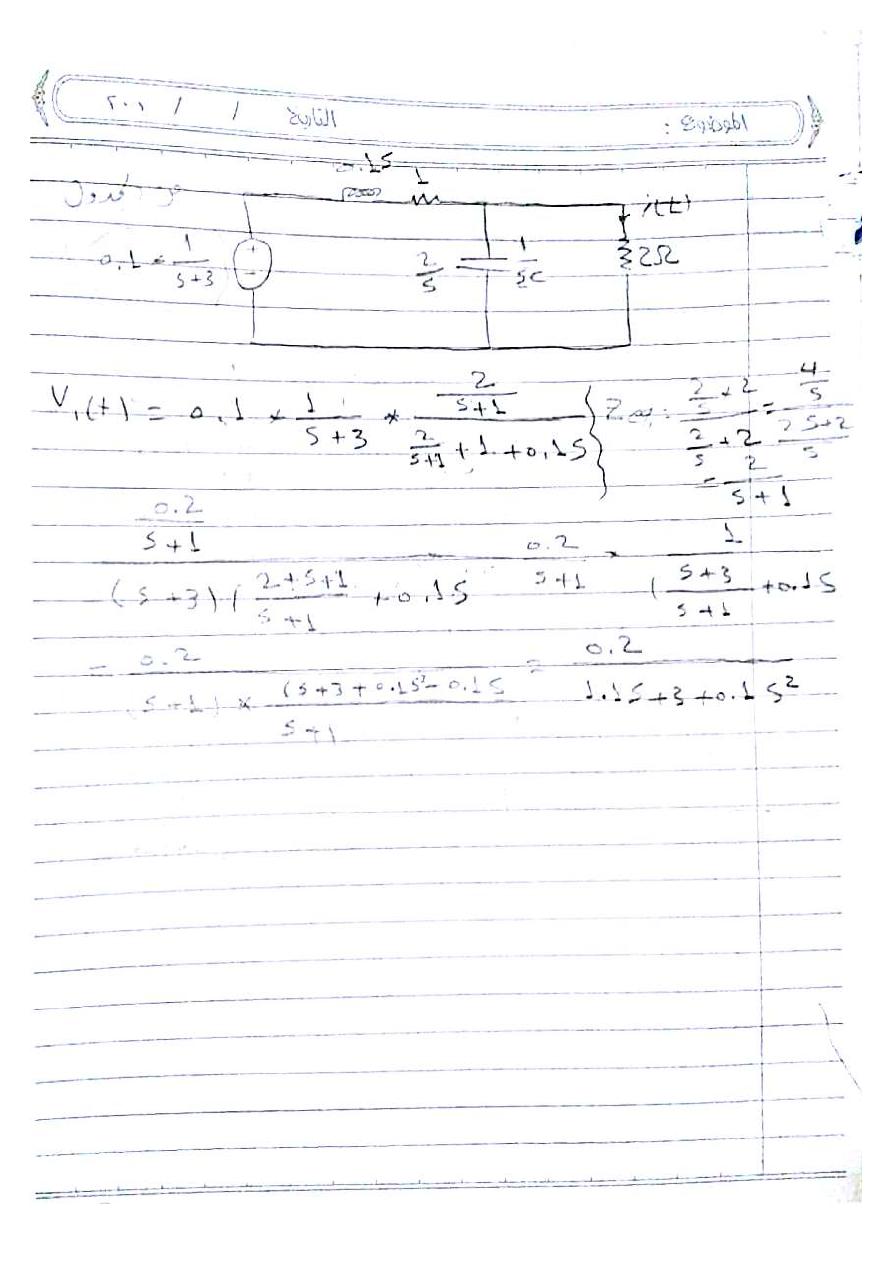 الموضوع : التاريخ / / ٢٠١
0.1S 1
من الجدول i(t)
0.1 * 1/(S+3) + - 2/S 1/SC 2Ω
V₁(t) = 0.1 * 1/(S+3) * (2/(S+1))/(2/(S+1) + 1 + 0.1S) } Zeq: (2/S * 2)/(2/S + 2) = (4/S)/((2S+2)/S)
= 2/(S+1)
(0.2/(S+1))/((S+3)((2+S+1)/(S+1) + 0.1S 0.2/(S+1) * 1/((S+3)/(S+1) + 0.1S
= 0.2/((S+1) * (S+3+0.1S²-0.1S)/(S+1)) = 0.2/(1.1S+3+0.1S²)